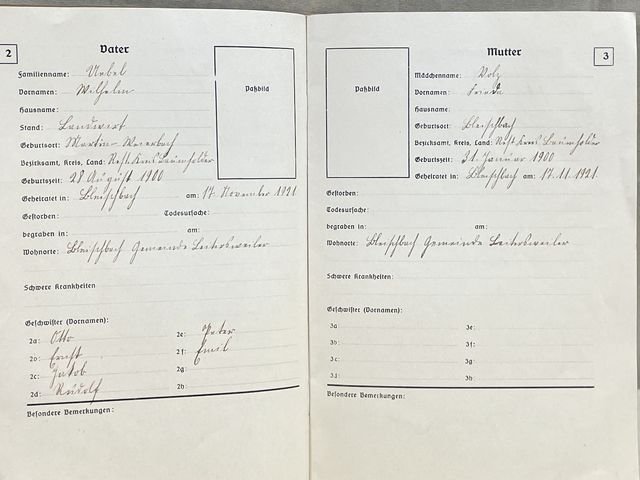 2
Vater
Familienname: Urbel
Paßbild
Vornamen: Wilhelm
Hausname:
Stand: Landwirt
Geburtsort: Martin-Weierbach
Bezirksamt, Kreis, Land: Rest Kreis Baumholder
Geburtszeit: 28 August 1900
Geheiratet in: Bleischbach am: 17 November 1921
Gestorben: Todesursache:
begraben in: am:
Wohnorte: Bleischbach Gemeinde Leitersweiler
Schwere Krankheiten
Geschwister (Vornamen):
2a: Otto 2e: Peter
2b: Ernst 2f: Emil
2c: Jakob 2g:
2d: Rudolf 2h:
Besondere Bemerkungen:
Mutter
3
Paßbild
Mädchenname: Volz
Vornamen: Frieda
Hausname:
Geburtsort: Bleischbach
Bezirksamt, Kreis, Land: Rest Kreis Baumholder
Geburtszeit: 31. Januar 1900
Geheiratet in: Bleischbach am: 17.11.1921
Gestorben:
Todesursache:
begraben in: am:
Wohnorte: Bleischbach Gemeinde Leitersweiler
Schwere Krankheiten:
Geschwister (Vornamen):
3a: 3e:
3b: 3f:
3c: 3g:
3d: 3h:
Besondere Bemerkungen: